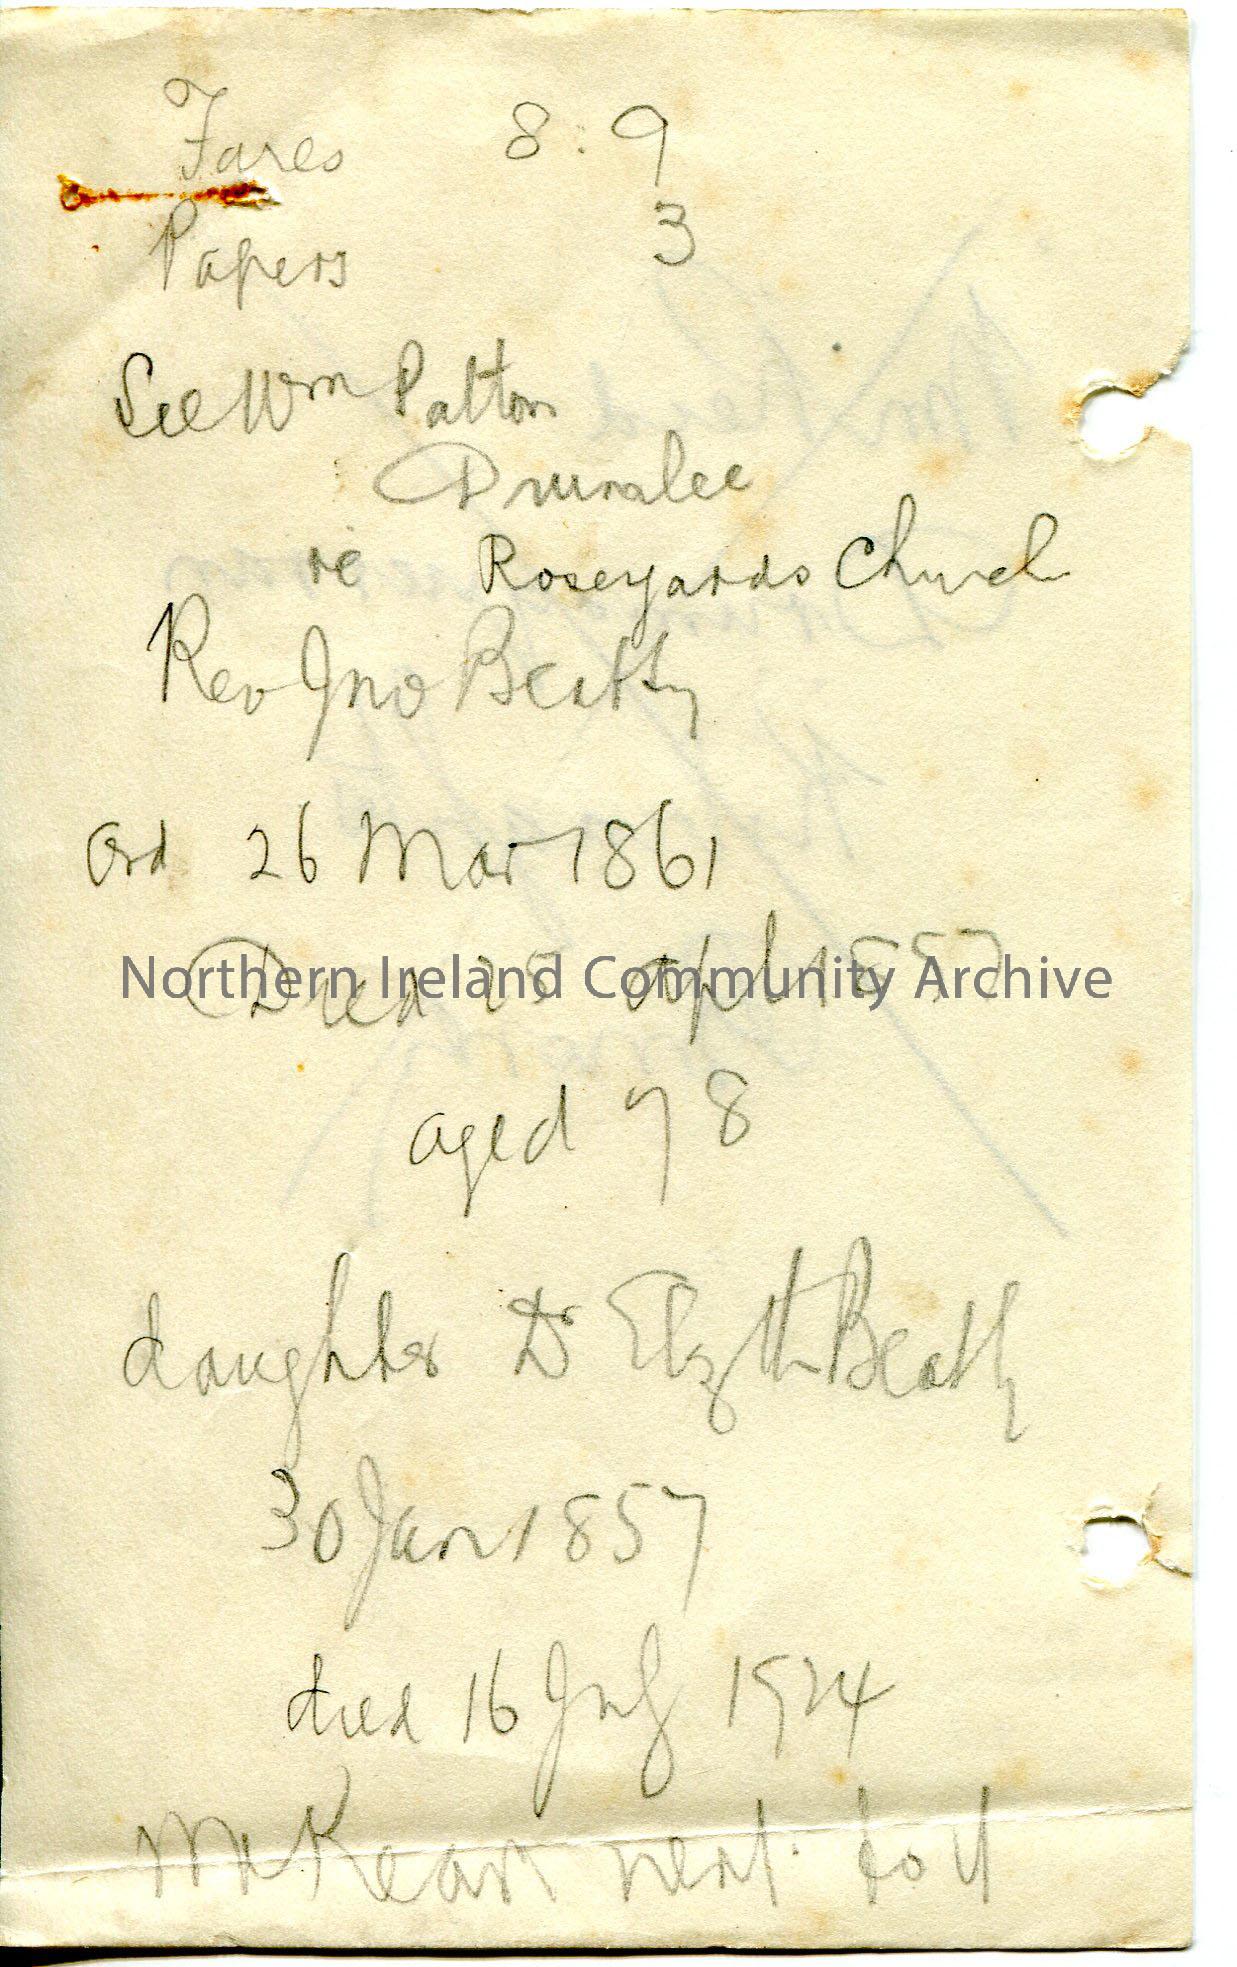 Fares 8:9
Papers 3
See Wm Patton
Drumalee
re Roseyards Church
Rev Jno Beatty
Ord 26 Mar 1861
Died 25 Apl 1857
Northern Ireland Community Archive
aged 78
daughter Dr Elizth Beatty
30 Jan 1857
died 16 July 1924
Mr Kean next